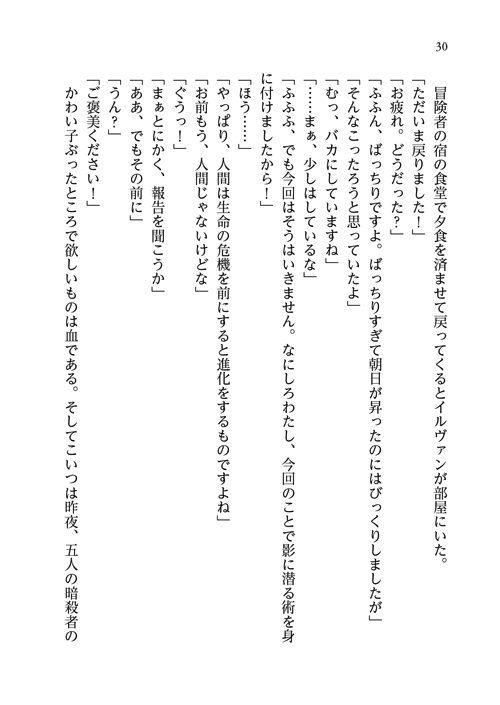 30
冒険者の宿の食堂で夕食を済ませて戻ってくるとイルヴァンが部屋にいた。
「ただいま戻りました！」
「お疲れ。どうだった？」
「ふふん、ばっちりですよ。ばっちりすぎて朝日が昇ったのにはびっくりしましたが」
「そんなこったろうと思っていたよ」
「むっ、バカにしていますね」
「……まぁ、少しはしているな」
「ふふふ、でも今回はそうはいきません。なにしろわたし、今回のことで影に潜る術を身
に付けましたから！」
「ほう……」
「やっぱり、人間は生命の危機を前にすると進化をするものですよね」
「お前もう、人間じゃないけどな」
「ぐうっ！」
「まぁとにかく、報告を聞こうか」
「ああ、でもその前に」
「うん？」
「ご褒美ください！」
かわい子ぶったところで欲しいものは血である。そしてこいつは昨夜、五人の暗殺者の